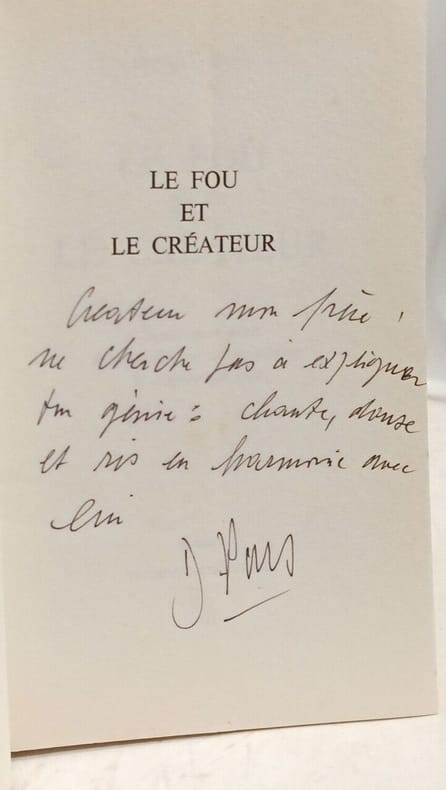 LE FOU
ET
LE CRÉATEUR
Createur mon frère,
ne cherche pas à expliquer
ton génie : chante, danse
et ris en harmonie avec
lui